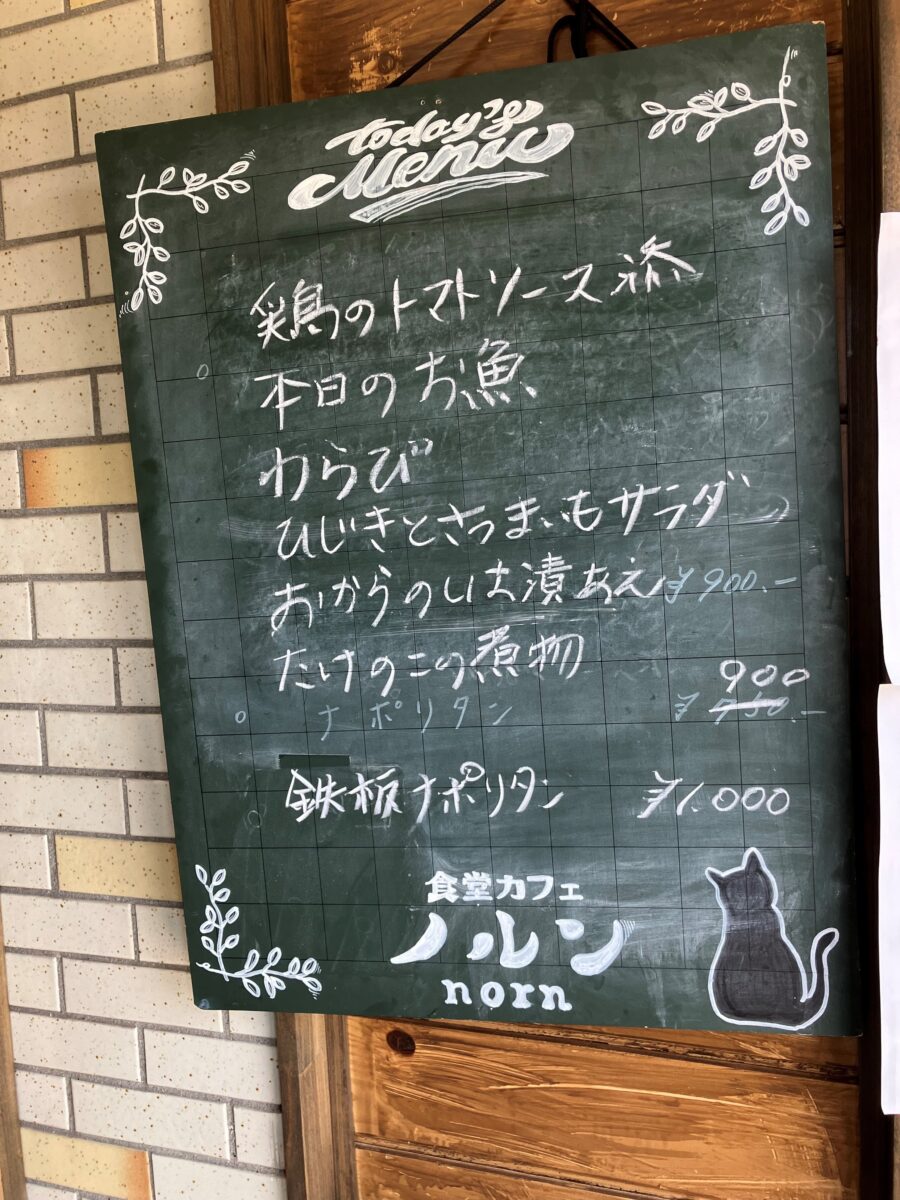 today's
Menu
鶏のトマトソース添
本日のお魚
わらび
ひじきとさつまいもサラダ
おからのしば漬あえ ¥900.-
たけのこの煮物
900
ナポリタン ¥750.-
鉄板ナポリタン ¥1.000
食堂カフェ
ノルン
norn